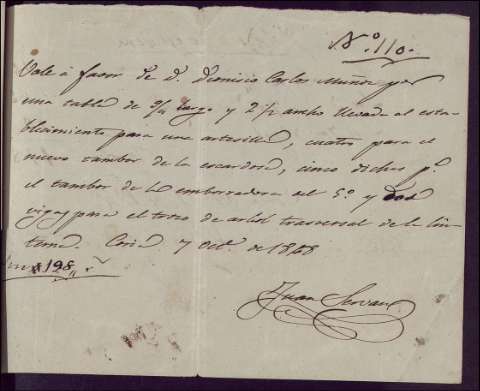 Nº. 110.
Vale á favor de D. Dionicio Carlos Muñoz por
una tabla de 9/4 largo y 2 1/2 ancho llevada al esta-
blecimiento para una artesilla, cuatro para el
nuevo tambor de la escardosa, cinco dichas pª.
el tambor de la emborradora del 5º. y dos
vigas para el trozo de arbol trasversal de la
7 Octe. de 1868
198
Juan Servan